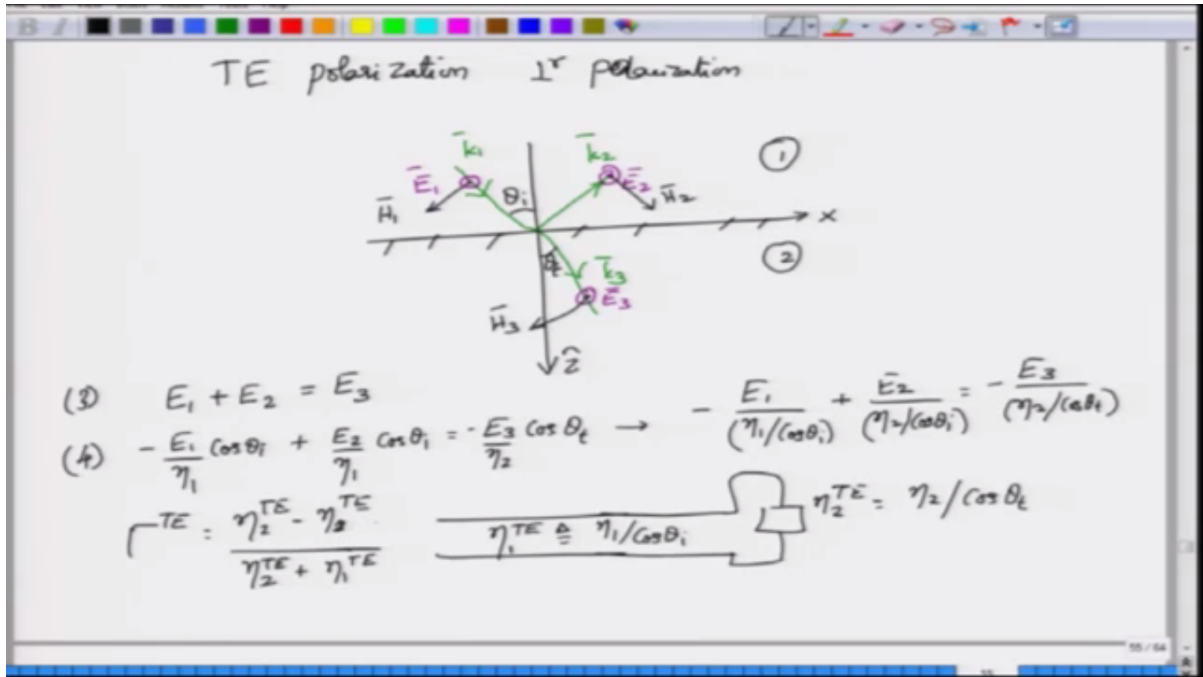 B I
TE polarization ⊥r polarization
k̄1 k̄2 ①
Ē1 θi Ē2
H̄1 H̄2
x
②
θt k̄3
Ē3
H̄3
ẑ
(3) E1 + E2 = E3
- E1/(η1/cosθi) + E2/(η2/cosθi) = - E3/(η2/cosθt)
(4) - E1/η1 cosθi + E2/η1 cosθi = - E3/η2 cosθt →
Γ^TE = (η2^TE - η2^TE)/(η2^TE + η1^TE) η1^TE ≜ η1/cosθi η2^TE = η2/cosθt
55 / 64